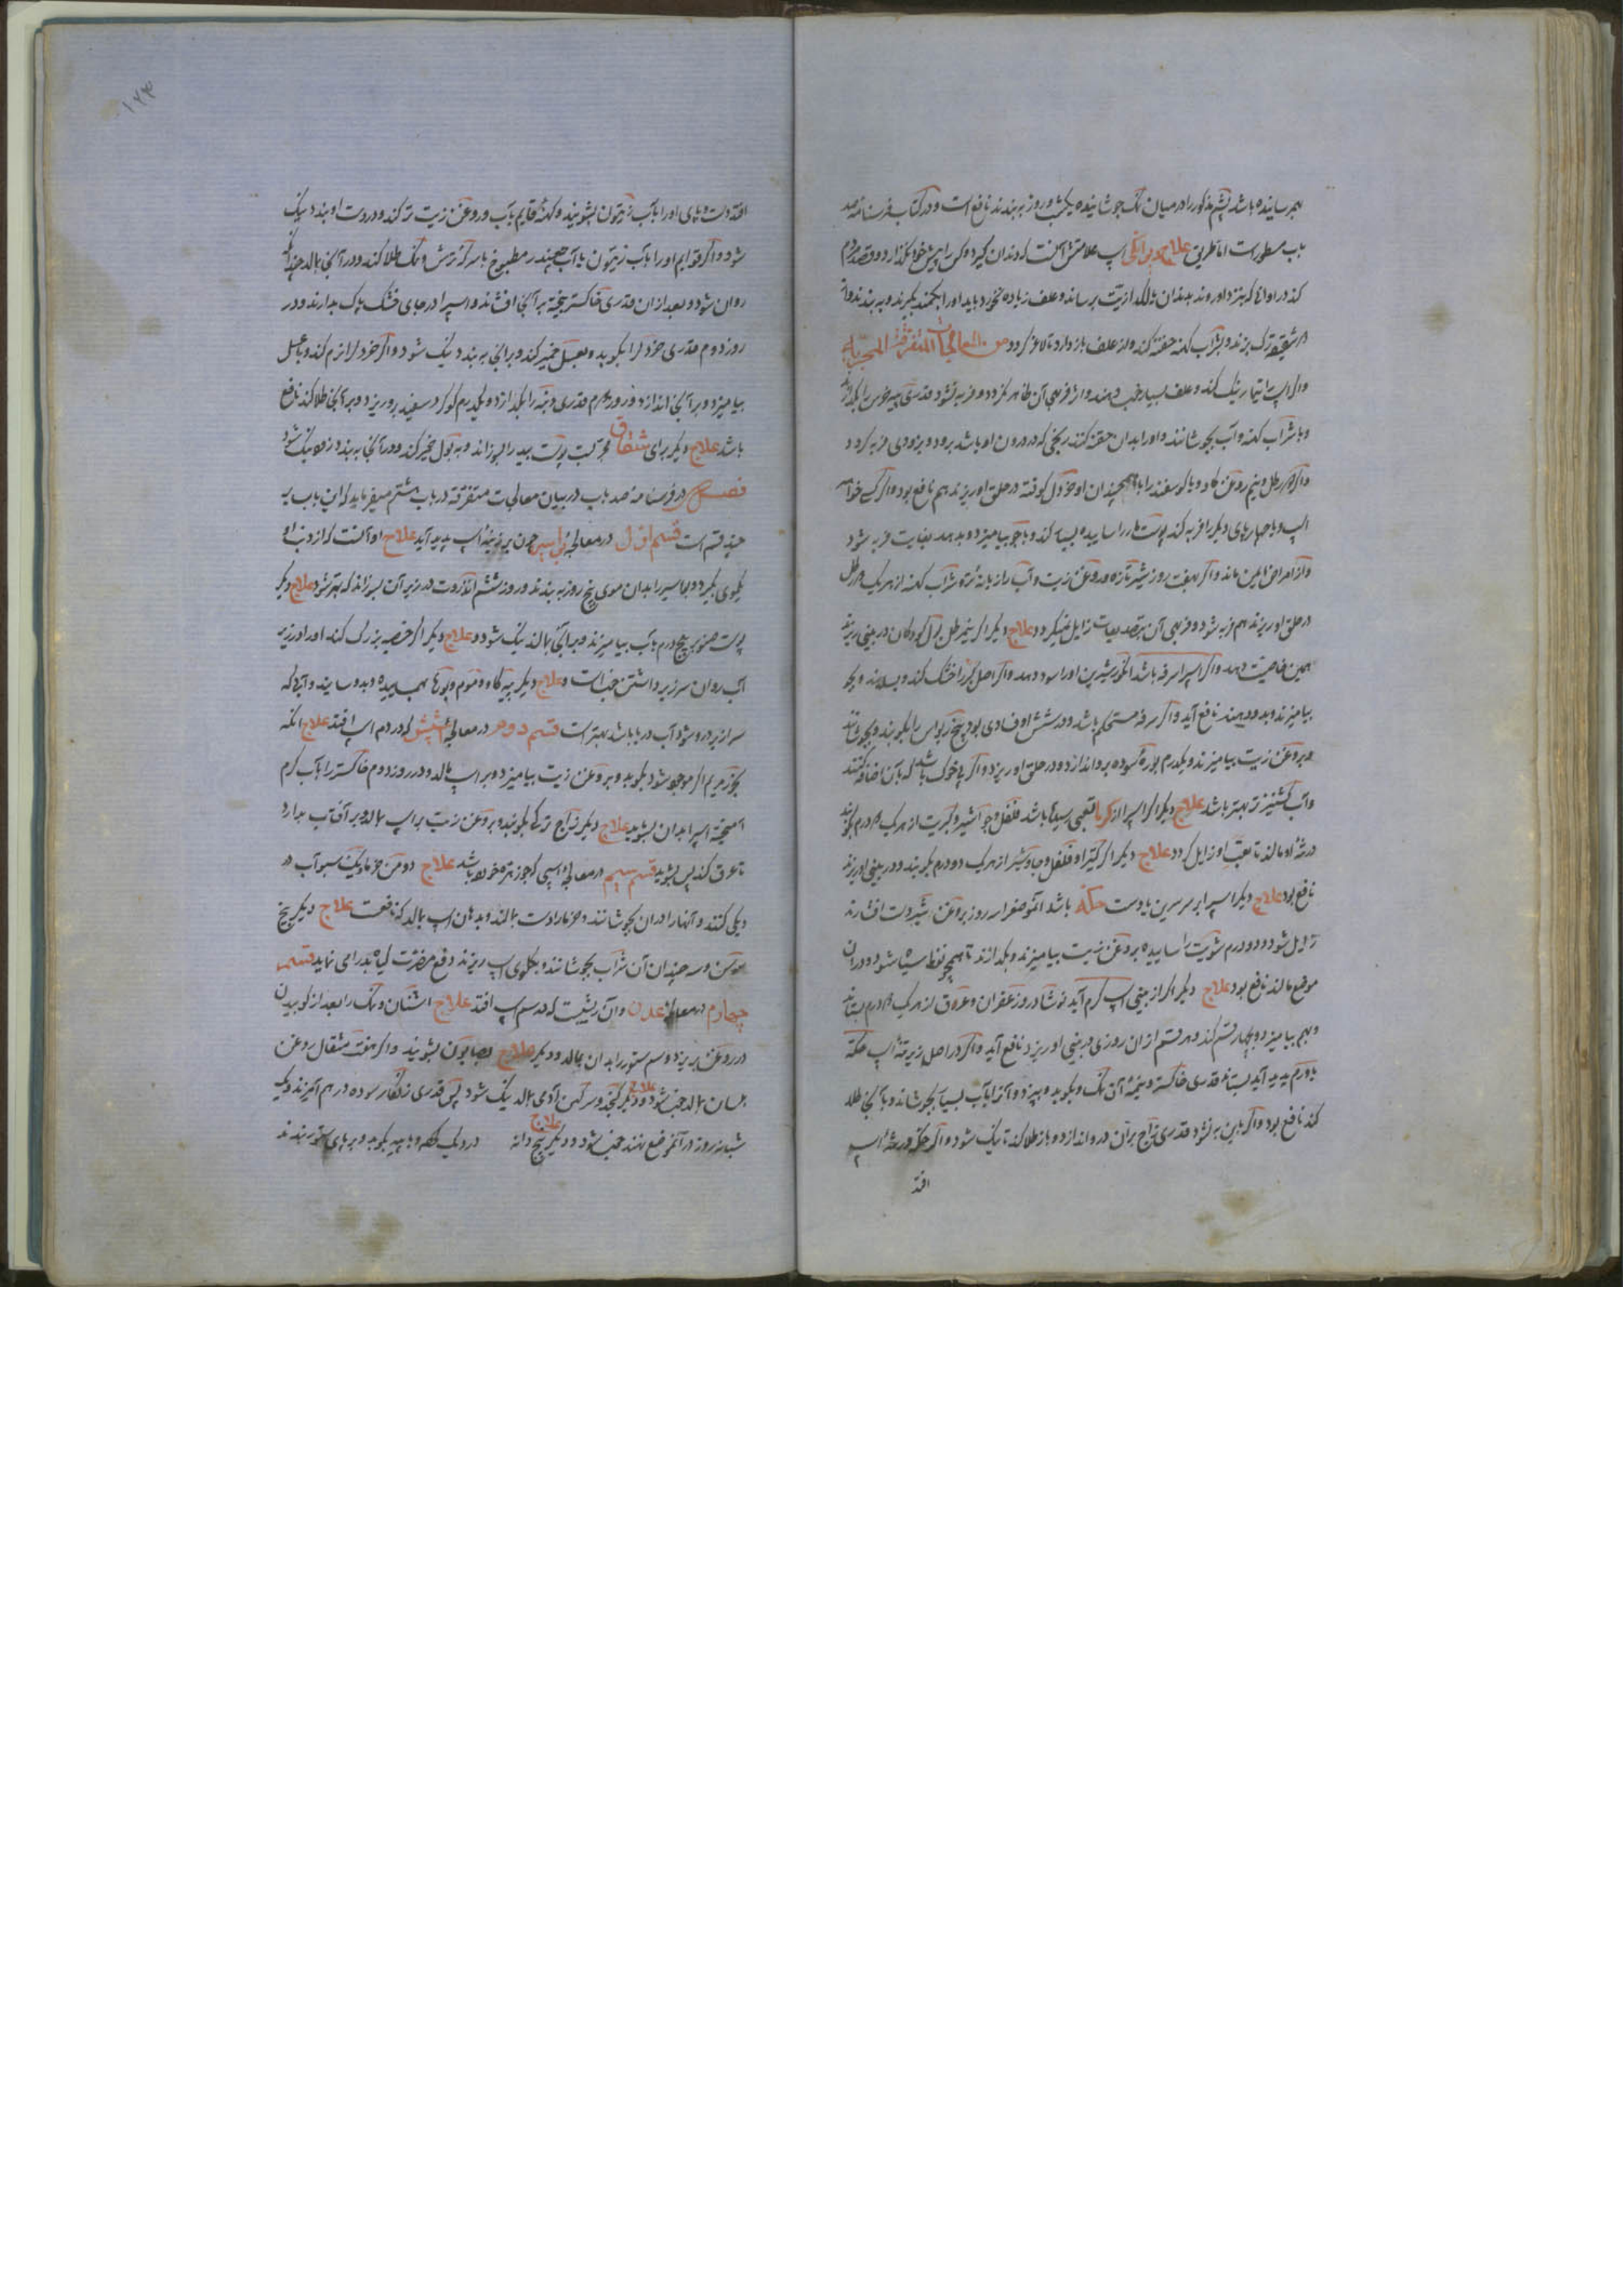 بهم رسانیده باشد پشم مذکور را در میان نمک جوشانیده یکشب و روز بر بندند نافع است و در کتاب فرسنامه صد
باب مسطور است اما طریق علاج دیوانکی اسپ علامتش آنست که دندان کیرد و کس را پیش خود نکذارد و قصد مردم
کند در اوانی که نزد او روند بدندان یا لکد اذیت برساند و علف زیاده نخورد باید او را بکمند بکیرند و به بندند و از
هر شقیقه رک بزنند و بشراب کهنه حقنه کنند و از علف باز دارد تا لاغر کردد من المعالجات المتفرقة المجربة
واکر اسپ را تیمار نیک کنند و علف بسیار خوب دهند و اثر فربهی آن ظاهر نکردد و فربه نشود قدری پیه خرس را بکدازند
و با شراب کهنه و آب بجوشانند و او را بدان حقنه کنند ریحی که در درون او باشد برود و بزودی فربه کردد
واکر رطل و نیم روغن کاو و یا کوسفند را با همچندان او خردل کوفته در حلق او ریزند هم نافع بود واکر کسی خواهد
اسپ و یا چارپای دیکر را فربه کند پوست مار را ساییده بسیار کند و با جو بیامیزد و بدهد بغایت فربه شود
و از امراض ایمن ماند واکر هفت روز شیر تازه و روغن زیت و آب رازیانه تازه و شراب کهنه از هریک رطل
در حلق او ریزند هم فربه شود و فربهی آن بتصدیعات زایل نمیکردد علاج دیکر اکر نیم رطل بول کودکان در بینی ریزند
همین خاصیت دهد واکر اسپ را سرفه باشد انکور شیرین او را سود دهد واکر اصل کرز را خشک کنند و بسایند و بجو
بیامیزند و بدو دهند نافع آید واکر سرفه مستحکم باشد و در شش او فسادی بود بیخ ریواس را بکوبند و بجوشانند
و بروغن زیت بیامیزند و یکدرم بوره سوده بر و اندازد و در حلق او ریزد واکر پی خوک باشد که بآن اضافه کنند
و آب کشنیز تر بهتر باشد علاج دیکر اکر اسپ را از کرما تعبی رسیده باشد فلفل و جواشیر و کبریت از هریک درم بکوبند
در منه او مالند تا تعب او زایل کردد علاج دیکر اکر کتیرا و فلفل و جاوشیر از هریک دو درم بکوبند و در بینی او ریزند
نافع بود علاج دیکر اسپ را بر سرین یا دست حکه باشد انموضع را سه روز بروغن شیر دست افشارند
زایل شود و دو درم شویت را ساییده بروغن زیت بیامیزند و بکدازند تا همچو نفط سیاه شود و در آن
موضع مالند نافع بود علاج دیکر اکر از بینی اسپ کرم آید نوشادر و زعفران و عروق از هریک درم بستانند
و بهم بیامیزد و بچهار قسم کند و هر قسم از آن روزی در بینی او ریزد نافع آید واکر در اصل زیر تنه اسپ حکه
یا ورم پدید آید بستاند قدری خاکستر و نیمه آن نمک و بکوبد و بپزد و آنرا بآب بسیار بجوشاند و بآنجا طلا
کند نافع بود واکر باین به نشود قدری زاج بر آن در و اندازد و باز طلا کند تا نیک شود واکر حکه در منه اسپ
افتد
افتد دست و پای او را بآب زیتون بشویند و کهنه قایم بآب و روغن زیت تر کند و در دست او بندد نیک
شود واکر قوایم او را بآب زیتون یا آب چغندر مطبوخ با سرکه ترش و نمک طلا کند و در آنجا بمالد چندانکه خون
روان شود و بعد از آن قدری خاکستر بیخته بر آنجا افشاند و اسپ را در جای خشک پاک بدارند و در
روز دوم قدری خردل را بکوبد و بعسل خمیر کند و بر آنجا به بندد نیک شود واکر خردل را نرم کند و با عسل
بیامیزد و بر آنجا اندازد و روز چهارم قدری دنبه را بکدازد و یکدرم کوکرد سفید برو ریزد و بر آنجا طلا کند نافع
باشد علاج دیکر برای شقاق مجربست پوست بید را بسوزاند و به بول خمیر کند و در آنجا به بندد زود نیک شود
فصل در فرسنامه صد باب در بیان معالجات متفرقه در باب هشتم میفرماید که این باب بر
چند قسم است قسم اول در معالجه بواسیر چون بر زینه اسپ پدید آید علاج او آنست که از دنب او
یکموی بکیرد و بواسیر را بدان موی پنج روز به بندند و روز ششم انزروت در زیر آن بسوزاند که بهتر شود علاج دیکر
پوست صنوبر پنج درم بآب بیامیزند و بر آنجا بمالند نیک شود و علاج دیکر اکر خصیه بزرک کند او را در زیر
آب روان سرزیر داشتن خوبست و علاج دیکر پیه کاو و موم و بوره بهم ساییده و بدو سایند و آبی که
سرازیر در و شود آب دریا باشد بهتر است قسم دوم در معالجه شپش که در دم اسپ افتد علاج آنکه
بخور مریم اکر موجود شود بکوبد و بروغن زیت بیامیزد و بر اسپ بمالد و در روز دوم خاکستر را بآب کرم
آمیخته اسپ را بدان بشوید علاج دیکر زاج ترکی بکوبند و بروغن زیت بر اسپ بمالد و بر آفتاب بدارد
تا عرق کند پس بشوید قسم سیم در معالجه اسپی که جوز هره خورده باشد علاج دو من خرما و یک سبو آب در
دیکی کنند و آنها را در آن بجوشانند و خرما را دست بمالند و بدهان اسپ بمالد که نافعست علاج دیکر بیخ
سوسن و سه چندان آن شراب بجوشانند و بکلوی اسپ ریزند دفع مضرت کیاه بد را می نماید قسم
چهارم در معالجه غدن و آن ریشیست که در سم اسپ افتد علاج اشنان و نمک را بعد از کوبیدن
در روغن بریزد و سم ستور را بدان بمالد و دیکر علاج بصابون بشویند واکر هفت مثقال روغن
بلسان بمالد خوب شود و دیکر علاج کنجد و سرکین آدمی بمالد نیک شود پس قدری زنکار سوده در هم آمیزند و یک
شبانه روز در آنموضع نهند خوب شود و دیکر علاج پنج دانه در دیک و با پیه بکوبد و بر پای ستور بندند
۱۲۳